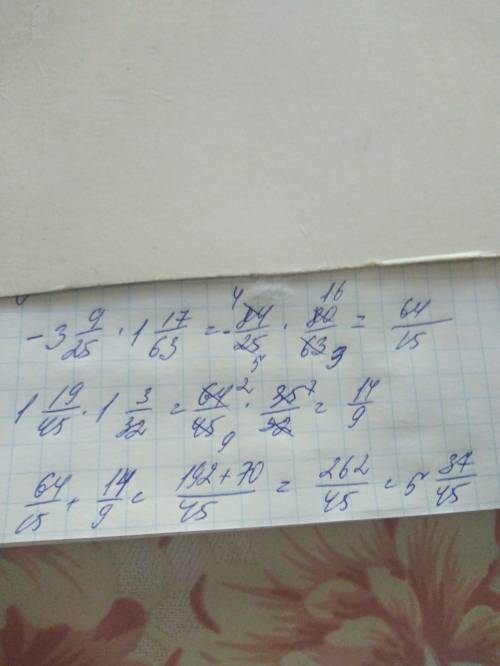 -3 9/25 · 1 17/63 = -84/25 · 80/63 = 64/15
1 19/45 · 1 3/32 = 64/45 · 35/32 = 14/9
64/15 + 14/9 = 192+70/45 = 262/45 = 5 37/45